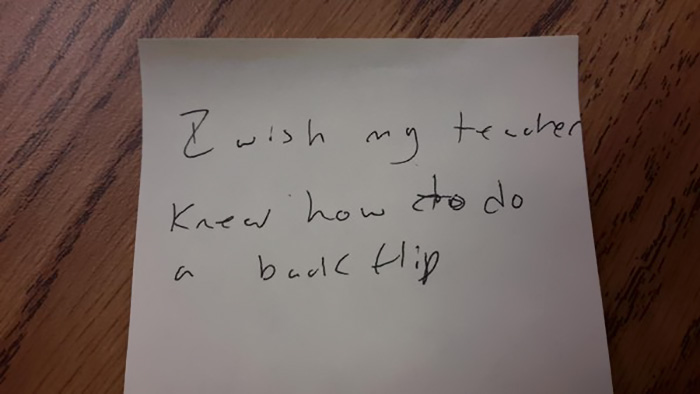 I wish my teacher
Knew how to do
a back flip